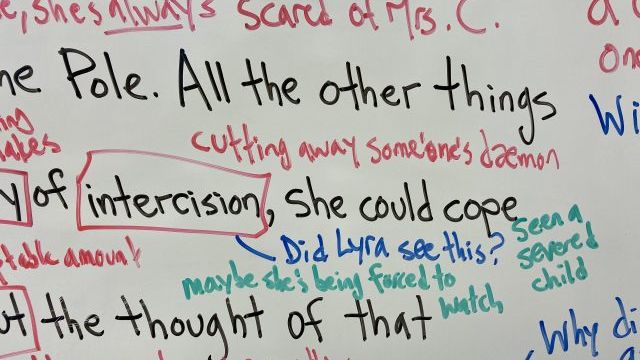 she's always scared of Mrs. C.
Pole. All the other things
cutting away someone's daemon
of intercision, she could cope
Did Lyra see this?
seen a
severed
child
maybe she's being forced to
watch
the thought of that
Why